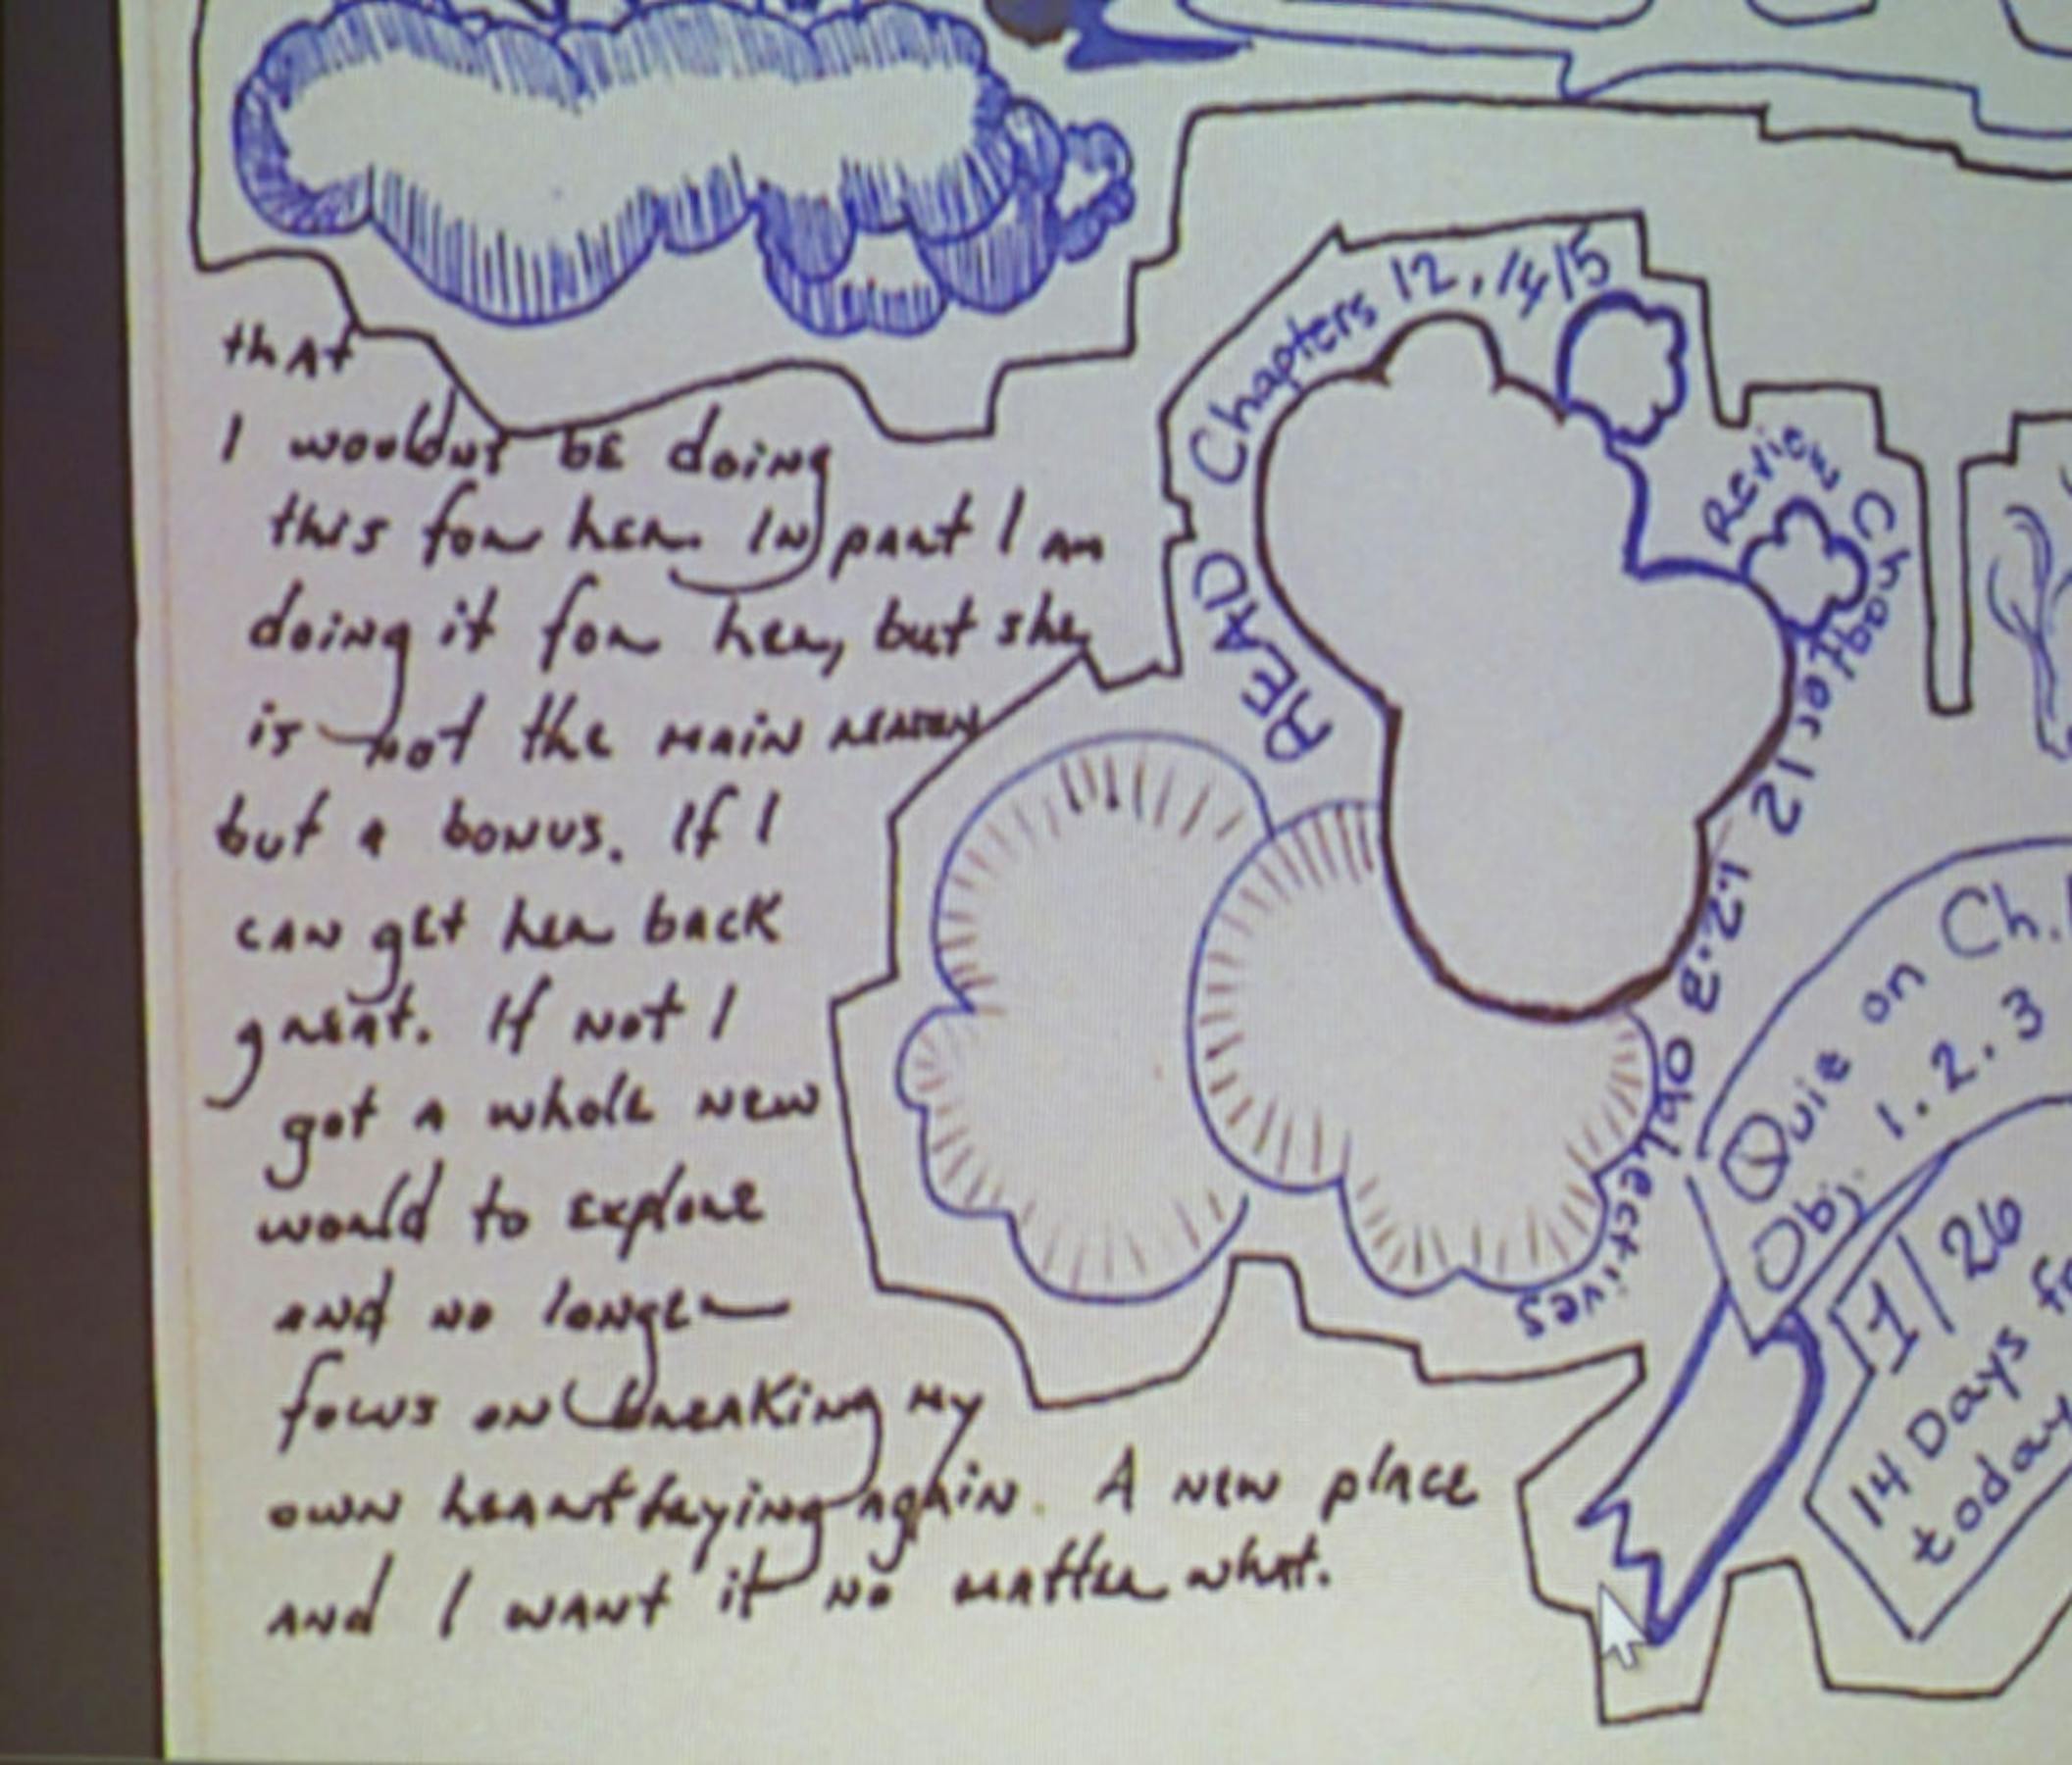 that
I wouldnt be doing
this for her. In part I am
doing it for her, but she
is not the main reason
but a bonus. If I
can get her back
great. If not I
got a whole new
would to explore
and no longer
focus on breaking my
own heart trying again. A new place
and I want it no matter what.
READ Chapters 12, 14, 15
Review Chapter 12
1.2.3 Objectives
Quie on Ch.
Obj. 1. 2. 3
1/26
14 Days
today